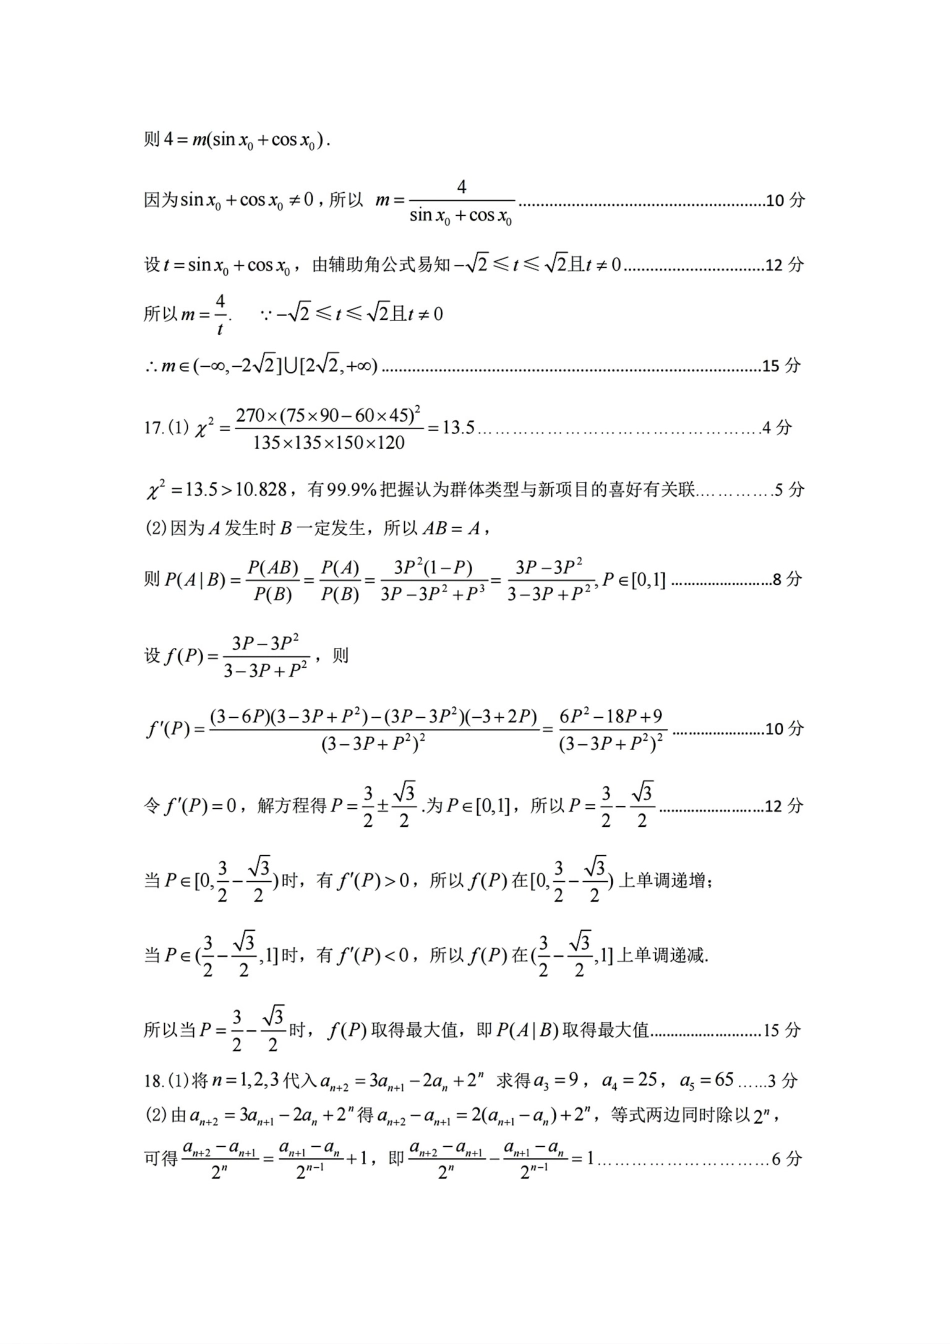 则 4 = m(sin x₀ + cos x₀).
因为 sin x₀ + cos x₀ ≠ 0 ,所以 m = 4/(sin x₀ + cos x₀) ......................................................10 分
设 t = sin x₀ + cos x₀，由辅助角公式易知 −√2 ≤ t ≤ √2且t ≠ 0...............................12 分
所以 m = 4/t. ∵ −√2 ≤ t ≤ √2且t ≠ 0
∴ m ∈ (−∞, −2√2]∪[2√2, +∞) ...................................................................................15 分
17.(1) χ² = 270×(75×90−60×45)²/(135×135×150×120) = 13.5……………………………………….4 分
χ² = 13.5 > 10.828，有 99.9% 把握认为群体类型与新项目的喜好有关联.…………..5 分
(2)因为 A 发生时 B 一定发生，所以 AB = A，
则 P(A|B) = P(AB)/P(B) = P(A)/P(B) = 3P²(1−P)/(3P−3P²+P³) = (3P−3P²)/(3−3P+P²), P∈[0,1] .........................8 分
设 f(P) = (3P−3P²)/(3−3P+P²)，则
f′(P) = ((3−6P)(3−3P+P²)−(3P−3P²)(−3+2P))/(3−3P+P²)² = (6P²−18P+9)/(3−3P+P²)² .......................10 分
令 f′(P) = 0，解方程得 P = 3/2 ± √3/2 .为 P∈[0,1]，所以 P = 3/2 − √3/2 ..........................12 分
当 P∈[0, 3/2 − √3/2)时，有 f′(P) > 0，所以 f(P) 在[0, 3/2 − √3/2) 上单调递增;
当 P∈(3/2 − √3/2, 1]时，有 f′(P) < 0，所以 f(P) 在(3/2 − √3/2, 1]上单调递减.
所以当 P = 3/2 − √3/2 时， f(P) 取得最大值，即 P(A|B) 取得最大值...........................15 分
18.(1)将 n = 1,2,3 代入 aₙ₊₂ = 3aₙ₊₁ − 2aₙ + 2ⁿ 求得 a₃ = 9， a₄ = 25， a₅ = 65 ……3 分
(2)由 aₙ₊₂ = 3aₙ₊₁ − 2aₙ + 2ⁿ 得 aₙ₊₂ − aₙ₊₁ = 2(aₙ₊₁ − aₙ) + 2ⁿ，等式两边同时除以 2ⁿ，
可得 (aₙ₊₂ − aₙ₊₁)/2ⁿ = (aₙ₊₁ − aₙ)/2ⁿ⁻¹ + 1，即 (aₙ₊₂ − aₙ₊₁)/2ⁿ − (aₙ₊₁ − aₙ)/2ⁿ⁻¹ = 1…………………………6 分